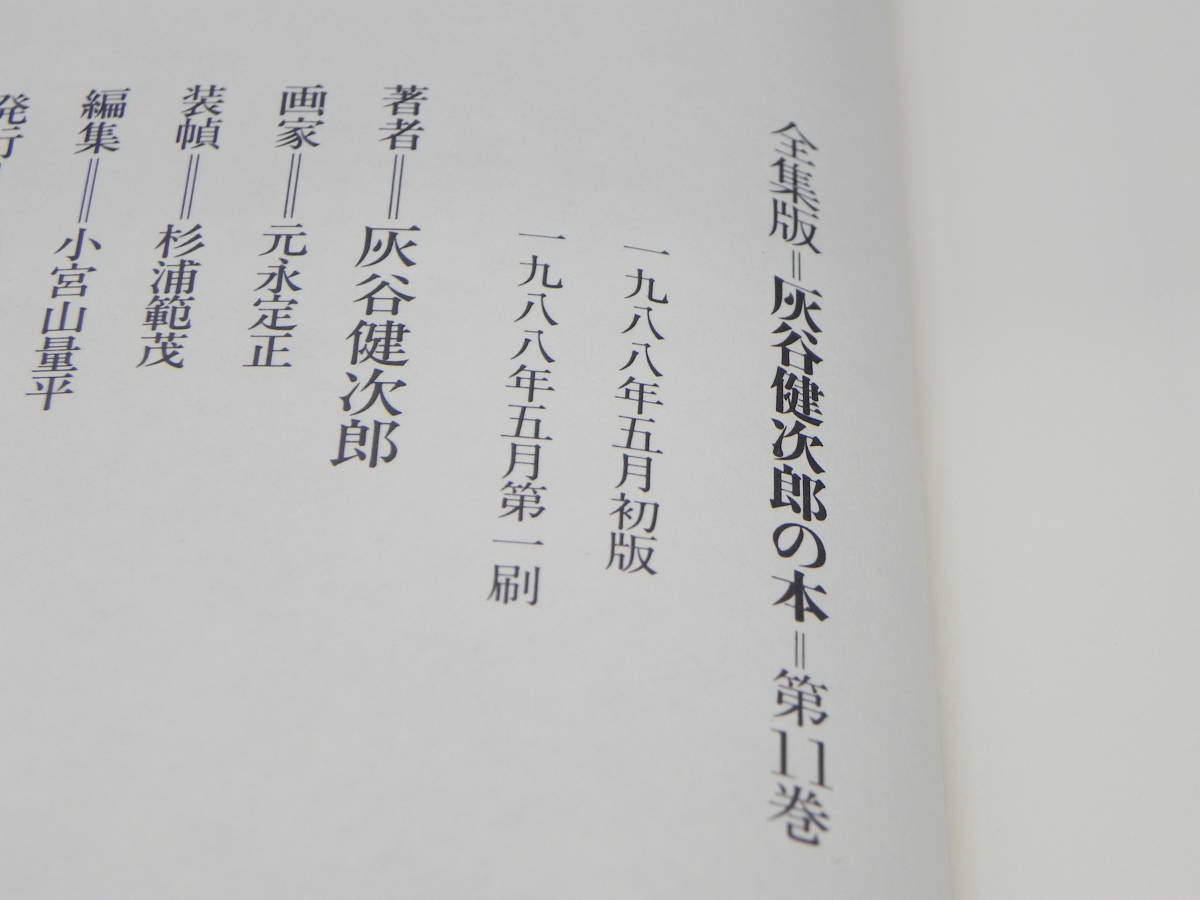 全集版＝灰谷健次郎の本＝第11巻
一九八八年五月初版
一九八八年五月第一刷
著者＝灰谷健次郎
画家＝元永定正
装幀＝杉浦範茂
編集＝小宮山量平
発行